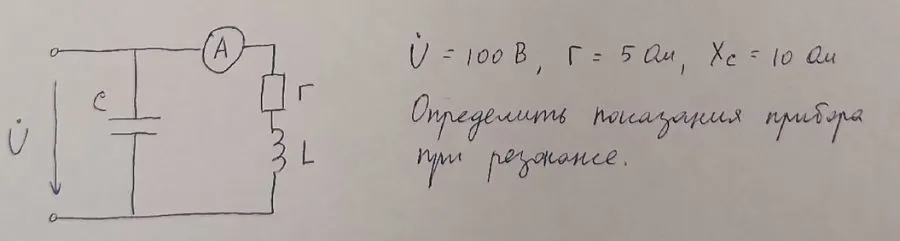 A
C
r
L
U̇
U̇ = 100 В, r = 5 Ом, Xc = 10 Ом
Определить показания прибора
при резонансе.